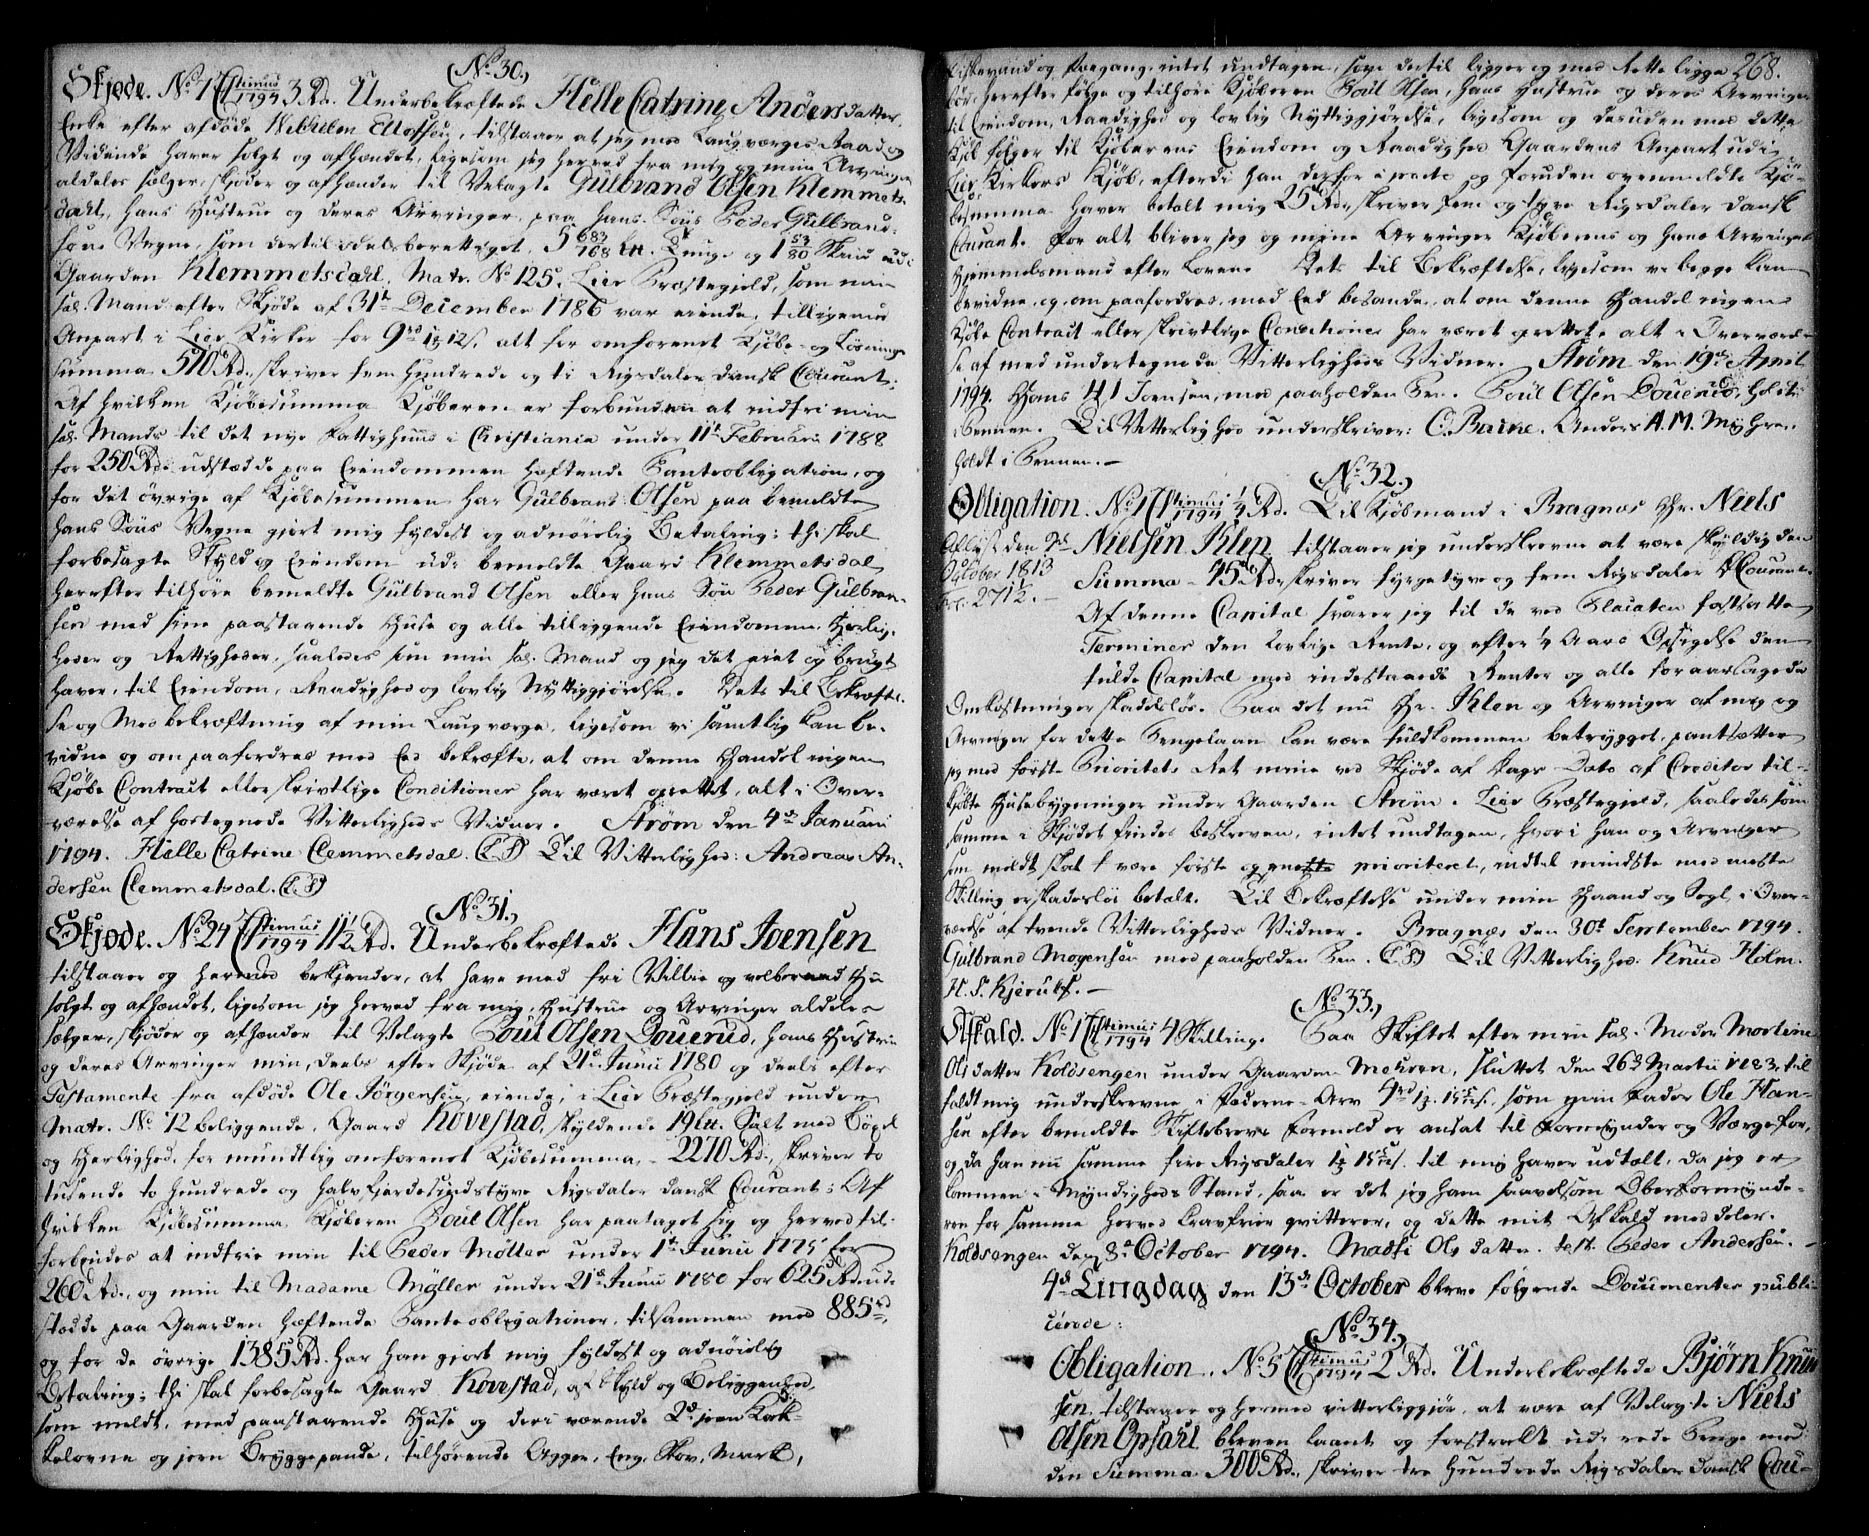 (No. 30.)
Skjøde. No. 17 Stimus 1794 3 Rd. Underbekræftede Helle Catrine Andersdatter,
Enke efter afdøde Ellofsen, tilstaaer at jeg med Laugværges Raad og
Vidende haver solgt og afhændet, ligesom jeg herved fra mig og min Arvinger
aldeles sælger, skjøder og afhænder til Velagte Gulbrand Olsen Klemmets-
dahl, hans Hustrue og deres Arvinger, paa hans Søns Peder Gulbrand-
søns Vegne, som dertil odelsberettiget, 5 683/768 Ltt. Tunge og 1 53/80 Skind udi
Gaarden Klemmetsdahl, Matr. No. 125, Lier Præstegjeld, som min
sal. Mand efter Skjøde af 31te December 1786 var eiende, tilligemed
Anpart i Lier Kirker for 9rd 1 12s, alt for omforenet Kjøbe- og Løsnings
summa 510 Rd., skriver fem hundrede og ti Rigsdaler dansk Courant;
Af hvilken Kjøbesumma Kjøberen er forbunden at indfri min
sal. Mands til det nye Fattighuus i Christiania under 11te Februari 1788
for 250 Rd. udstædde paa Eiendommen hæftende Pantobligation, og
for det øvrige af Kjøbesummen har Gulbrand Olsen paa bemeldte
hans Søns Vegne gjort mig fyldest og adnøielig Betaling; thi skal
forbesagte Skyld og Eiendom udi bemeldte Gaard Klemmetsdal
herefter tilhøre bemeldte Gulbrand Olsen eller hans Søn Peder Gulbran-
sen med sine paastaaende Huse og alle tilliggende Eiendomme, Herlig-
heder og Rettigheder, saaledes som min sal. Mand og jeg det eiet og brugt
haver, til Eiendom, Raadighed og lovlig Nyttiggjørelse. Dets til Bekræftel-
se og Med bekræftning af min Laugværge, ligesom vi samtlig kan be-
vidne og om paafordres med Eed bekræfte, at om denne Handel ingen
Kjøbe Contract eller skrivtlige Conditioner har været oprettet, alt i Over-
værelse af hostegnede Vitterligheds Vidner. Strøm den 4de Januarii
1794. Helle Catrine Clemmetsdal. (L.S.) Til Vitterlighed: Andreas An-
dersen Clemmetsdal. (L.S.)
(No. 31.)
Skjøde. No. 24 Stimus 1794 11½ Rd. Underbekræftede Hans Joensen
tilstaaer og hermed bekjender, at have med fri Villie og velberaad Hu
solgt og afhændet, ligesom jeg herved fra mig, Hustrue og Arvinger aldeles
sælger, skjøder og afhænder til Velagte Poul Olsen Douerud, hans Hustrue
og deres Arvinger min, deels efter Skjøde af 21de Junii 1780 og deels efter
Testamente fra afdøde Ole Jørgensen, eiende, i Lier Præstegjeld under
Matr. No. 72 beliggende, Gaard Hovestad, skyldende 19 Ltt. Salt med Bøxel
og Herlighed, for mundtlig omforenet Kjøbesumma, 2270 Rd., skriver to
tusende to hundrede og halvfjerdesindstyve Rigsdaler dansk Courant; Af
hvilken Kjøbesumma Kjøberen Poul Olsen har paataget sig og herved til-
forbindes at indfrie min til Peder Møller under 1te Junii 1775 for
260 Rd., og min til Madame Møller under 21de Junii 1780 for 625 Rd. ud-
stædde paa Gaarden hæftende Panteobligationer, tilsammen med 885rd,
og for de øvrige 1385 Rd. har han gjort mig fyldest og adnøielig
Betaling; thi skal forbesagte Gaard Hovestad, af Skyld og Beliggenhed,
som meldt, med paastaaende Huse og deri værende 2de jern Kak-
kelovne og jern Bryggepande, tilhørende Agger, Eng, Skov, Mark,
268.
Fiskevand og Havegang, intet undtagen, som dertil ligger og med Rette ligge
bør, herefter følge og tilhøre Kjøberen Poul Olsen, hans Hustrue og deres Arvinger
til Eiendom, Raadighed og lovlig Nyttiggjørelse, ligesom og desuden med dette
Kjøb følger til Kjøberens Eiendom og Raadighed Gaardens Anpart udi
Lier Kirkers Kjøb, efterdi han derfor i parte og foruden ovenmeldte Kjø-
besumma haver betalt mig 25 Rd., skriver fem og tyve Rigsdaler dansk
Courant. For alt bliver jeg og mine Arvinger Kjøberens og hans Arvinger
Hjemmelsmand efter Loven. Dets til Bekræftelse, ligesom vi begge kan
bevidne, og, om paafordres, med Eed besande, at om denne Handel ingen
Kjøbe Contract eller skrivtlige Conditioner har været oprettet, alt i Overværel-
se af med undertegnede Vitterligheds Vidner. Strøm den 19de April
1794. Hans H I Joensen, med paaholden Pen. Poul Olsen Douerud, holdt
i Pennen. Til Vitterlighed underskriver: C. Baine. Anders A. M. Myhren
holdt i Pennen.
(No. 32.)
Obligation. No. 17 Stimus 1794 ½ Rd. Til Kjøbmand i Bragnæs Hr. Niels
Aflyst den 9de
October 1813
Fol. 271½.
Nielsen Klen tilstaaer jeg underskrevne at være skyldig den
Summa 75 Rd., skriver syvgetyve og fem Rigsdaler D. Courant.
Af denne Capital svarer jeg til de ved Placaten fastsatte
Terminer den lovlige Rente, og efter ¼ Aars Opsigelse den
fulde Capital med indestaaende Renter og alle foraarsagede
Omkostninger skadesløs. Paa det nu Hr. Klen og Arvinger af mig og
Arvinger for dette Pengelaan kan være fuldkommen betrygget, pantsætter
jeg med første Prioritets Ret mine ved Skjøde af Dags Dato af Creditor til-
kjøbte Husebygninger under Gaarden Strøm i Lier Præstegjeld, saaledes som
samme i Skjødet findes beskreven, intet undtagen, hvori han og Arvinger
som meldt skal være første og eneste prioriteret, indtil mindste med meste
Skilling er skadesløs betalt. Til Bekræftelse under min Haand og Segl, i Over-
værelse af tvende Vitterligheds Vidner. Bragnæs den 30te September 1794.
Gulbrand Mogensen med paaholden Pen. (L.S.) Til Vitterlighed: Knud Holm.
H. S. Kjerulf.
(No. 33.)
Afkald. No. 17 Stimus 1794 4 Skilling. Paa Skiftet efter min sal. Moder Mortine
Olsdatter Koldsengen under Gaarden Mehren, sluttet den 26de Martii 1783, til
faldt mig underskrevne i Fæderne-Arv 4rd 1 15s., som min Fader Ole Han-
sen efter bemeldte Skiftebrevs Formeld er ansat til Formynder og Værge for,
og da han nu samme fire Rigsdaler 1 15s. til mig haver udtælt, da jeg er
kommen i Myndigheds Stand, saa er det jeg ham saavelsom Oberformynde-
ren for samme herved kravfrier qvitterer, og dette mit Afkald meddeler.
Koldsengen den 8de October 1794. Mathi Olsdatter. test. Peder Andersen.
4de Tingdag den 13de October bleve følgende Documenter publi-
cerede:
(No. 34.)
Obligation. No. 5 Stimus 1794 2 Rd. Underbekræftede Bjørn Knud
sen, tilstaaer og hermed vitterliggjør, at være af Velagte Niels
Olsen Opsahl bleven laant og forstrakt udi rede Penge med
den Summa 300 Rd., skriver tre hundrede Rigsdaler dansk Cou-